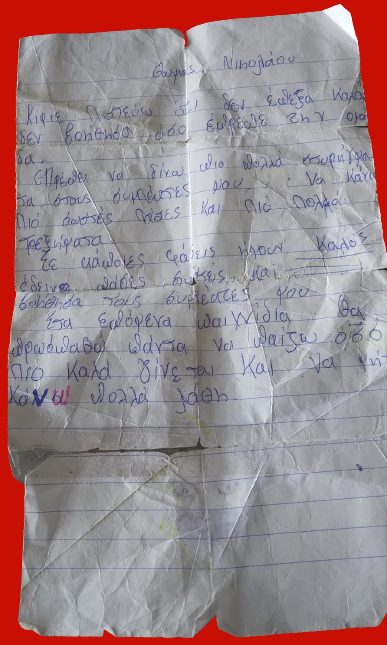 Θωμάς Νικολάου
Κύριε Πιστεύω ότι δεν έπεξα καλά
δεν βοήθησα όσο έπρεπε την ομά
δα.
Έπρεπε να δίνω πιο πολλά στηρίγμα
τα στους συμπέκτες μου. Να κάνω
πιο σωστές πάσες και πιο πολλά
τρεξήματα
Σε κάποιες φάσεις ήμουν καλός
έδεινα πάσες σωστές και
βοήθησα τους συμπέκτες μου
Στα επόμενα παιχνίδια θα
προσπαθώ πάντα να παίζω όσο
πιο καλά γίνεται και να μη
κάνω πολλά λάθη.